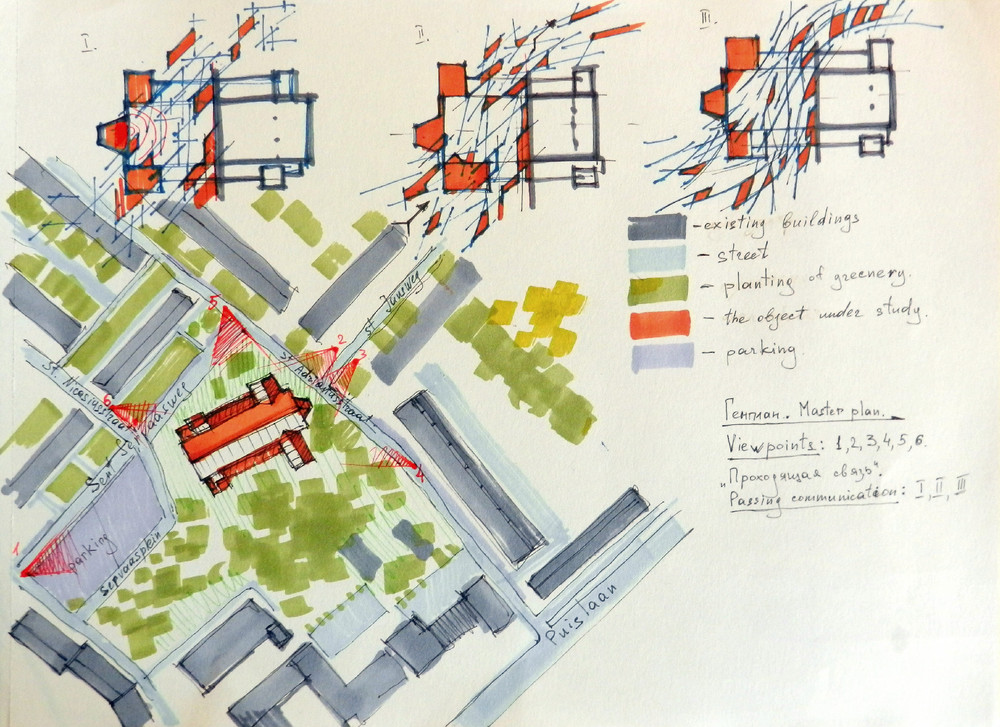 I.
II.
III.
-existing buildings
- street
- planting of greenery.
- the object under study.
- parking.
St. Jansweg
5
2
3
St. Adrianusstraat
St. Nicasiusstraat
6
Sent Servaasweg
4
Генплан. Master plan.
Viewpoints: 1,2,3,4,5,6.
„Проходящая связь".
Passing communication: I, II, III
1
parking
Servaasplein
Puislaan